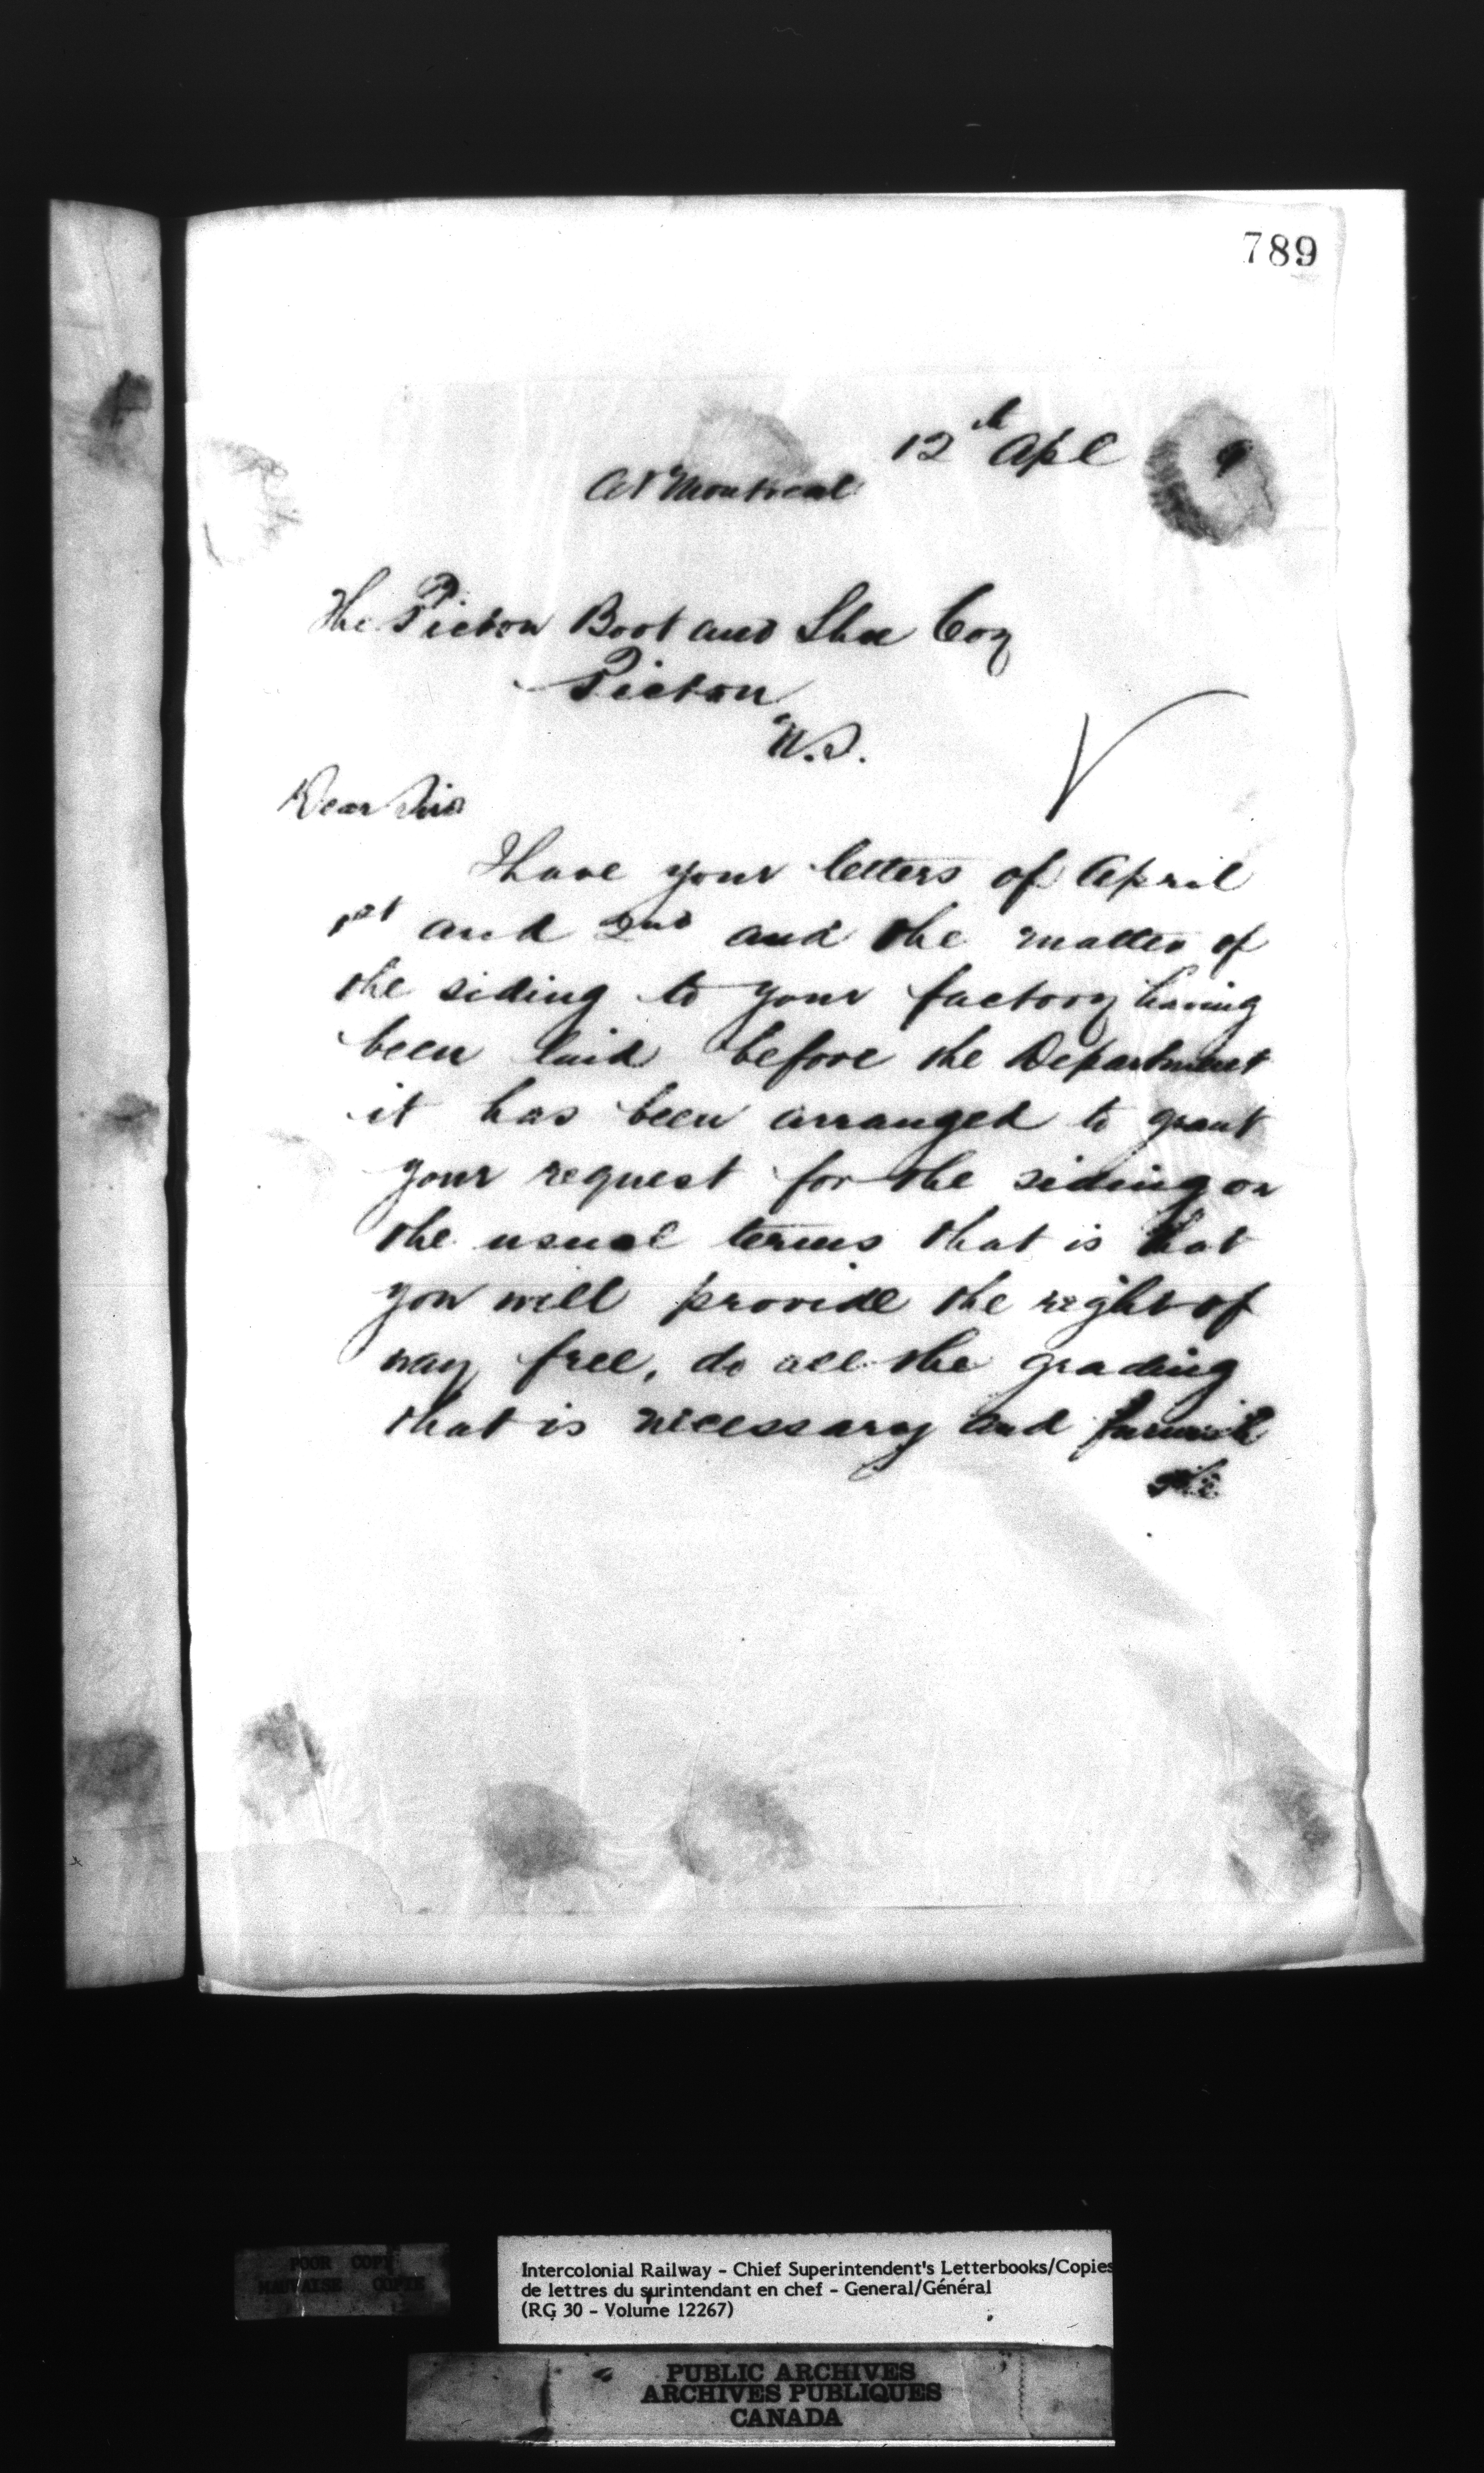 789
12th Apl 9
At Montreal
The Pictou Boot and Shoe Coy
Pictou
N.S.
Dear Sirs
I have your letters of April
1st and 2nd and the matter of
the siding to your factory having
been laid before the Department
it has been arranged to grant
your request for the siding on
the usual terms that is that
you will provide the right of
way free, do all the grading
that is necessary and furnish
the
POOR COPY
MAUVAISE COPIE
Intercolonial Railway - Chief Superintendent's Letterbooks/Copies
de lettres du surintendant en chef - General/Général
(RG 30 - Volume 12267)
PUBLIC ARCHIVES
ARCHIVES PUBLIQUES
CANADA